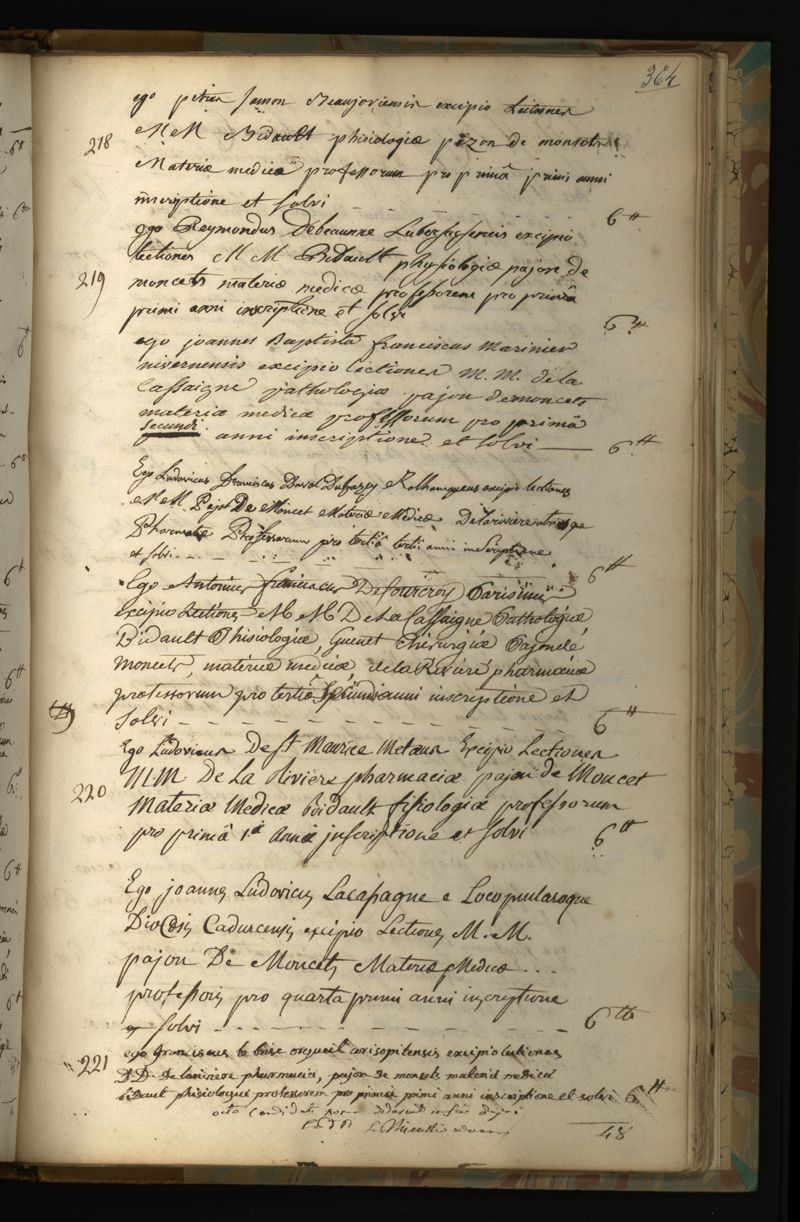 364
ego petrus Jamon Beaujoviensis excipio Lectiones
218
M M Bidault phisiologiæ pajon de moncets
Materiæ medicæ professorum pro primâ primi anni
inscriptione et solvi 6 ₶
ego Reymondus Debeaunne excipio
lectiones M M Bidault physiologiæ pajon de
219
moncets materiæ medicæ professorum pro primâ
primi anni inscriptione et solvi 6 ₶
ego joannes Baptista franciscus marinier
nivernensis excipio lectiones M. M. de la
Cassaigne pathologiæ pajon demoncets
materiæ medicæ professorum pro primâ
secundi anni inscriptione et solvi 6 ₶
Ego Ludovicus Franciscus excipio lectiones
M. M. Pajon De Moncet Materiæ Medicæ Delariviere utriusque
Pharmatiæ Professorum pro tertiâ tertii anni inscriptione
et solvi 6 ₶
Ego Antonius franciscus Defourcroy Parisiinus
excipio Lectiones M M De La Cassaigne Pathologiæ
Bidault Phisiologiæ, Guenet Chirurgiæ Pajondé
moncets, materiæ medicæ, de la Rivière pharmaciæ
professorum pro tertiâ secundi anni inscriptione et
solvi 6 ₶
Ego Ludovicus De st Maurice Metaus Excipio Lectiones
M.M De La Riviere pharmaciæ pajon de Moncet
220
Materiæ Medicæ Bidault fisiologiæ professorum
pro primâ 1i Anni inscriptione et solvi 6 ₶
Ego joannes Ludovicus Lacassagne e Locopularoque
Diocesis Cadurcensis excipio Lectiones M. M.
pajon De Moncets Materiæ Medicæ . . .
professoris pro quarta primi anni inscriptione
et solvi 6 ₶
221
ego franciscus le brise orgueil corisopitensis excipio lectiones
D D. delariviere pharmaciæ, pajon de moncets materiæ medicæ
bidault phisiologiæ professorum pro prima primi anni inscriptione et solvi 6 ₶
octo candidati
48